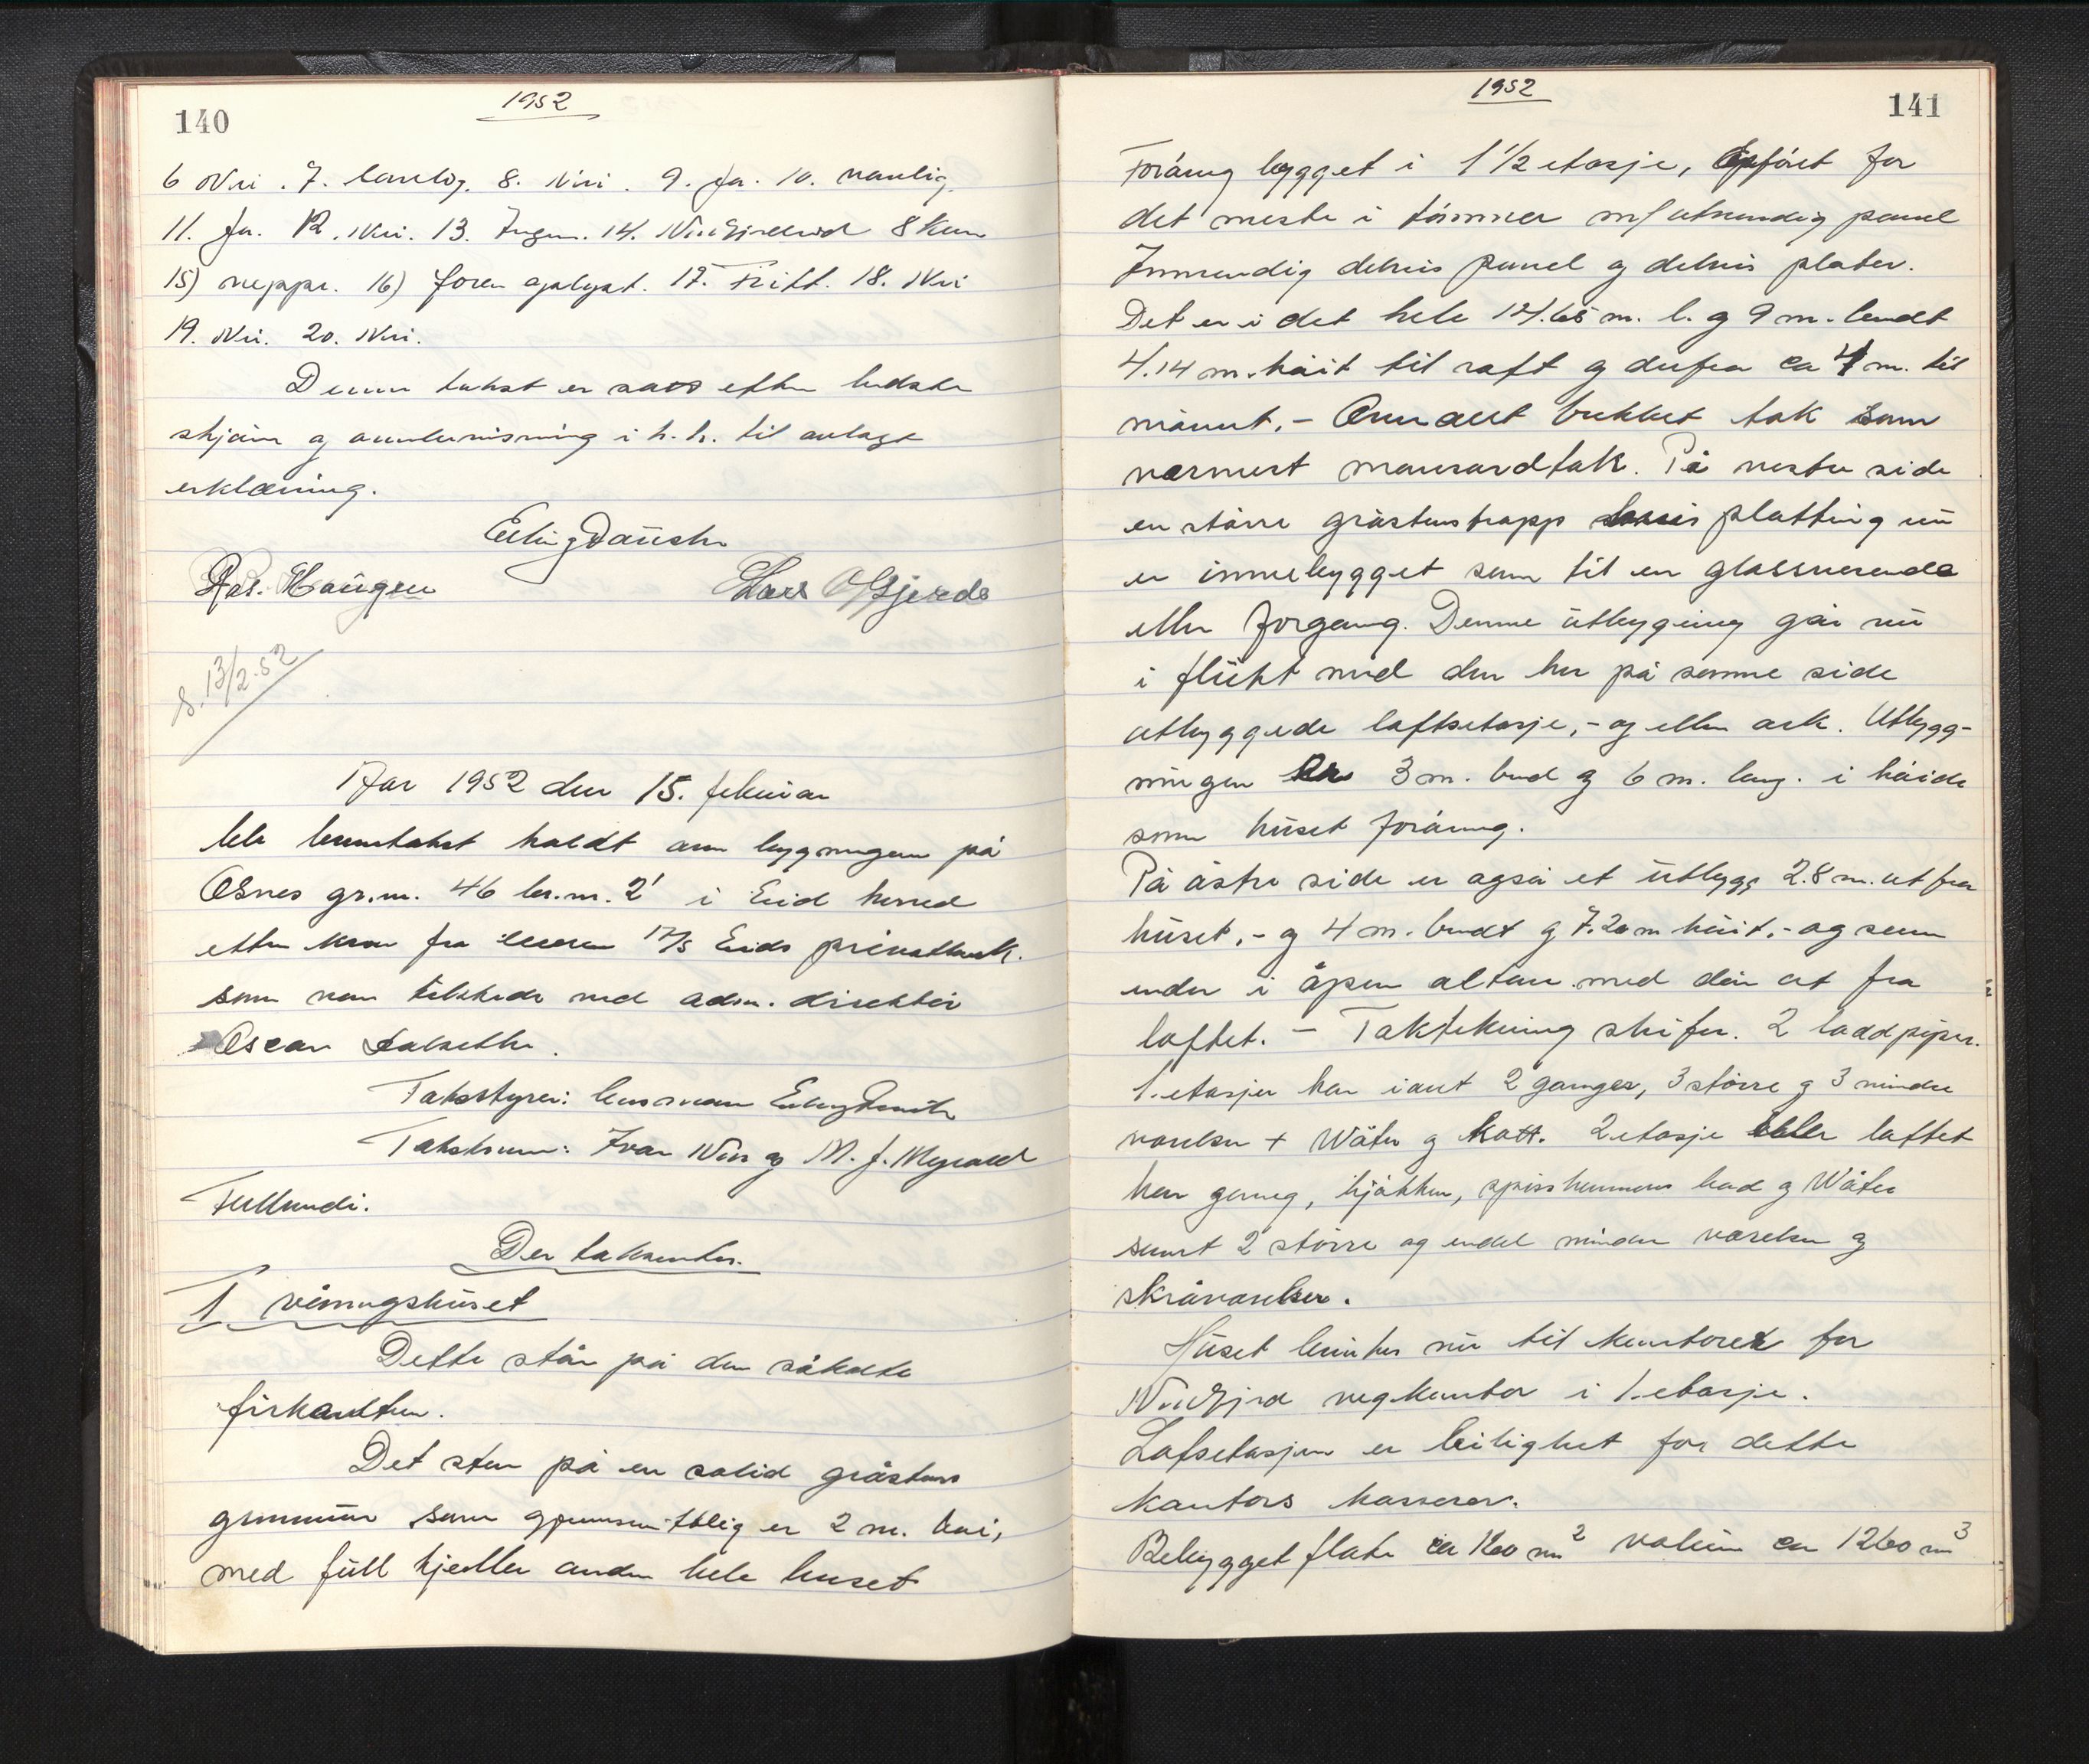 140
1952
6 Nei. 7. vanlig. 8. Nei. 9. Ja. 10. vanlig.
11. Ja. 12. Nei. 13. Ingen. 14. Nordfjordeid 8 km
15) neppe. 16) foran oplyst. 17. Fritt. 18. Nei
19. Nei. 20. Nei.
Denne takst er sats efter bedste
skjøn og overbevisning i h.h. til avlagt
erklæring.
Erling Dausch
Ras. Haugen Lars O Gjerde
S. 13/2-52
Aar 1952 den 15. februar
ble branntakst holdt over bygningen på
Osnes gr.nr. 46 br.nr. 2 i Eid herred
etter krav fra eieren A/S Eids privatbank.
som var tilstede ved adm. direktør
Oscar
Takstyrer: lensmann Erling
Takstmenn: Ivar Nes og M. J. Myrold
Fullmodi.
Der takseertes.
1 våningshuset
Dette står på den såkalte
firkanten.
Det står på en solid gråstens
grunnmur som gjennomsnittlig er 2 m. høi,
med full kjeller under hele huset
1952
141
Foråvrig bygget i 1 1/2 etasje, Opført for
det meste i tømmer m/ utvendig panel
Innvendig delvis panel og delvis plater.
Det er i det hele 14.65 m. l. og 9 m. bredt
4.14 m. høit til raft og derfra ca 4 m. til
mønnet. - Ovenalt brukket tak som
nærmest mansardtak. På vestre side
en større gråstenstrapp platting nu
er innebygget som til en glassveranda
eller forgang. Denne utbygging går nu
i flukt med den her på samme side
utbyggede loftsetasje, - og eller ark. Utbygg-
ningen er 3 m. bred og 6 m. lang. i høide
som huset foråvrig.
På østre side er også et utbygg 2.8 m. ut fra
huset, - og 4 m. bredt og 7.20 m høit, - og som
ender i åpen altan med dør ut fra
loftet. - Taktekning skifer. 2 laddpiper.
1. etasjer har ialt 2 ganger, 3 større og 3 mindre
værelser + Wåter og kott. 2 etasje eller loftet
har gang, kjøkken, spiskammer bad og Wåter
samt 2 større og endel mindre værelser og
skråværelser.
Huset benyttes nu til kontorer for
Nordfjord vegkontor i 1. etasje.
Loftsetasjen er leilighet for dette
kontors kasserer.
Bebygget flate ca 160 m² volum ca 1260 m³